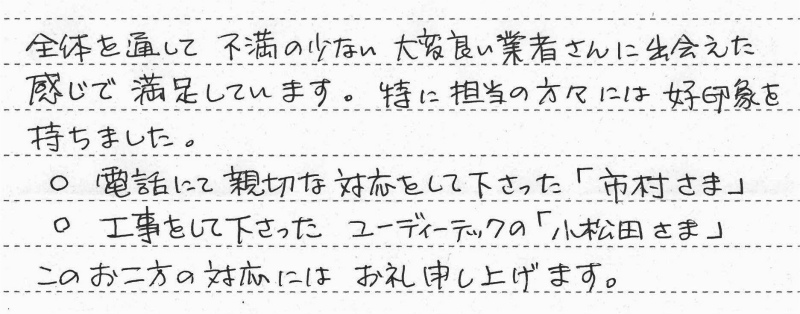 全体を通して 不満の少ない 大変良い業者さんに出会えた
感じで 満足しています。 特に 担当の方々には 好印象を
持ちました。
○ 電話にて 親切な 対応をして下さった「市村さま」
○ 工事をして下さった ユーディーテックの「小松田さま」
このお二方の対応には お礼申し上げます。